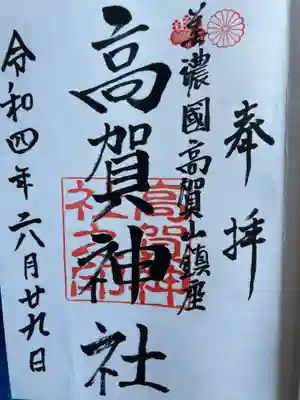 奉拝
美濃國高賀山鎮座
高賀神社
令和四年六月廿九日
高賀神
社之印